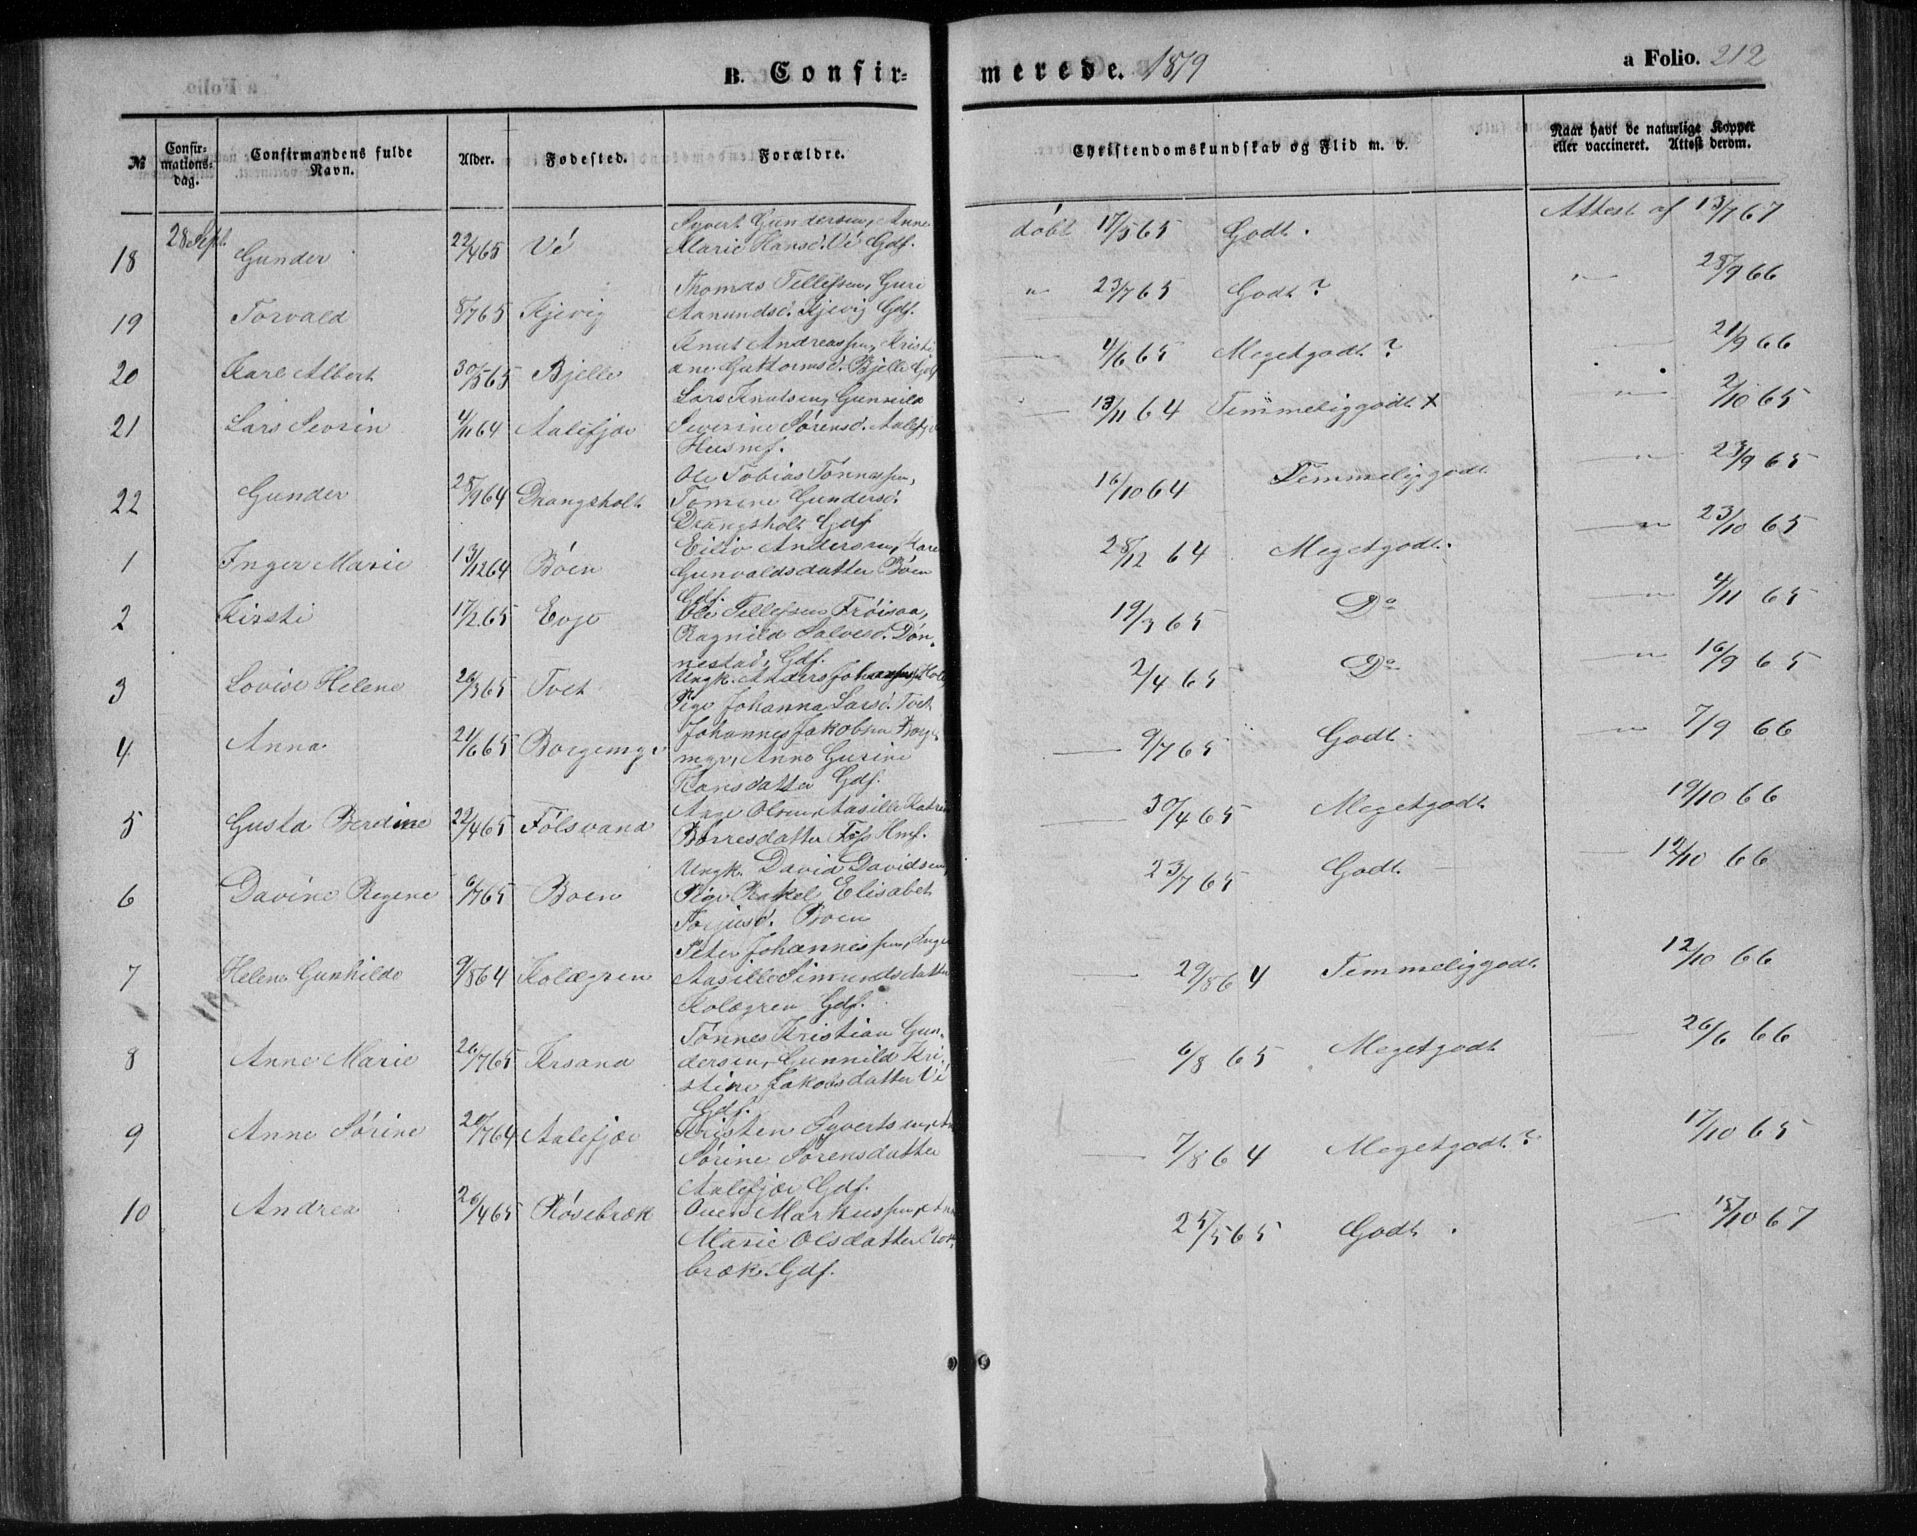 B. Confir-
merede. 1879
a Folio. 212
№
Confir-
mations-
dag.
Confirmandens fulde
Navn.
Alder.
Fødested.
Forældre.
Christendomskundskab og Flid m. v.
Naar havt de naturlige Kopper
eller vaccineret. Attest derom.
18 28 Sept. Gunder 22/4 65 Vé
Syvert Gundersen, Anne
Marie Hansd. Vé Gdf.
døbt 17/5 65 Godt. Attest af 13/7 67
19 Torvald 8/7 65 Kjevig
Thomas Tellefsen, Guri
Aanundsd. Kjevig Gdf.
" 23/7 65 Godt? " 28/9 66
20 Karl Albert 30/5 65 Bjelle
Knut Andreassen, Kristi
ane Guttormsd. Bjelle Gdf
— 4/6 65 Megetgodt? 21/9 66
21 Lars Sevrin 4/11 64 Aalefjær
Lars Knutsen, Gunnild
Severine Sørensd. Aalefjær
Husmf.
— 13/11 64 Temmeliggodt x " 2/10 65
22 Gunder 25/9 64 Drangsholt
Ole Tobias Tønnessen,
Tomine Gundersd.
Drangsholt Gdf
16/10 64 Temmeliggodt " 23/9 65
1 Inger Marie 13/12 64 Bøen
Eiliv Andersen, Karen
Gunvaldsdatter Bøen
Gdf.
28/12 64 Megetgodt. — " 23/10 65
2 Kirsti 17/2 65 Evje
Ole Tellefsen Frøisaa,
Ragnild Salvesd. Døn-
nestad, Gdf.
19/3 65 Do " 4/11 65
3 Lovise Helene 26/3 65 Tvet
Ungk. Anders Johnsen Holte
Pige Johanna Larsd. Tvet
2/4 65 Do " 16/9 65
4 Anna 21/6 65 Borgemyr
Johannes Jakobsen Borge
myr, Anne Gurine
Hansdatter Gdf.
— 9/7 65 Godt. " 7/9 66
5 Gusta Berdine 22/4 65 Følsvand
Aage Olsen, Aasille Katrine
Børresdatter Hmf.
— 30/4 65 Megetgodt 19/10 66
6 Davine Regine 6/7 65 Boen
Ungk. David Davidsen,
Pige Rakel Elisabet
Terjusd. Boen
23/7 65 Godt. — 12/10 66
7 Helene Gunhilde 9/8 64 Kolægren
Peter Johannessen, Inger
Aasille Simundsdatter
Kolægren Gdf.
— 29/8 64 Temmeliggodt 12/10 66
8 Anne Marie 26/7 65 Krsand
Tønnes Kristian Gun-
dersen, Gunnild Kri-
stine Jakobsdatter Vé
Gdf.
— 6/8 65 Megetgodt — 26/6 66
9 Anne Sørine 20/7 64 Aalefjær
Kristen Syvertsen,
Sørine Sørensdatter
Aalefjær Gdf.
— 7/8 64 Megetgodt? 17/10 65
10 Andrea 26/4 65 Røsebræk
Ouen Markussen,
Marie Olsdatter
bræk. Gdf.
25/5 65 Godt. — 15/10 67